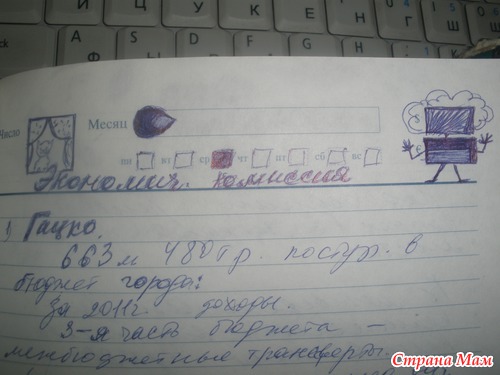 Число
Месяц
пн вт ср чт пт сб вс
Экономич. комиссия
1) Гацко.
663 м 480 т.р. поступ. в
бюджет города:
За 2011г. доходы.
3-я часть бюджета –
межбюджетные трансферты.
Страна Мам